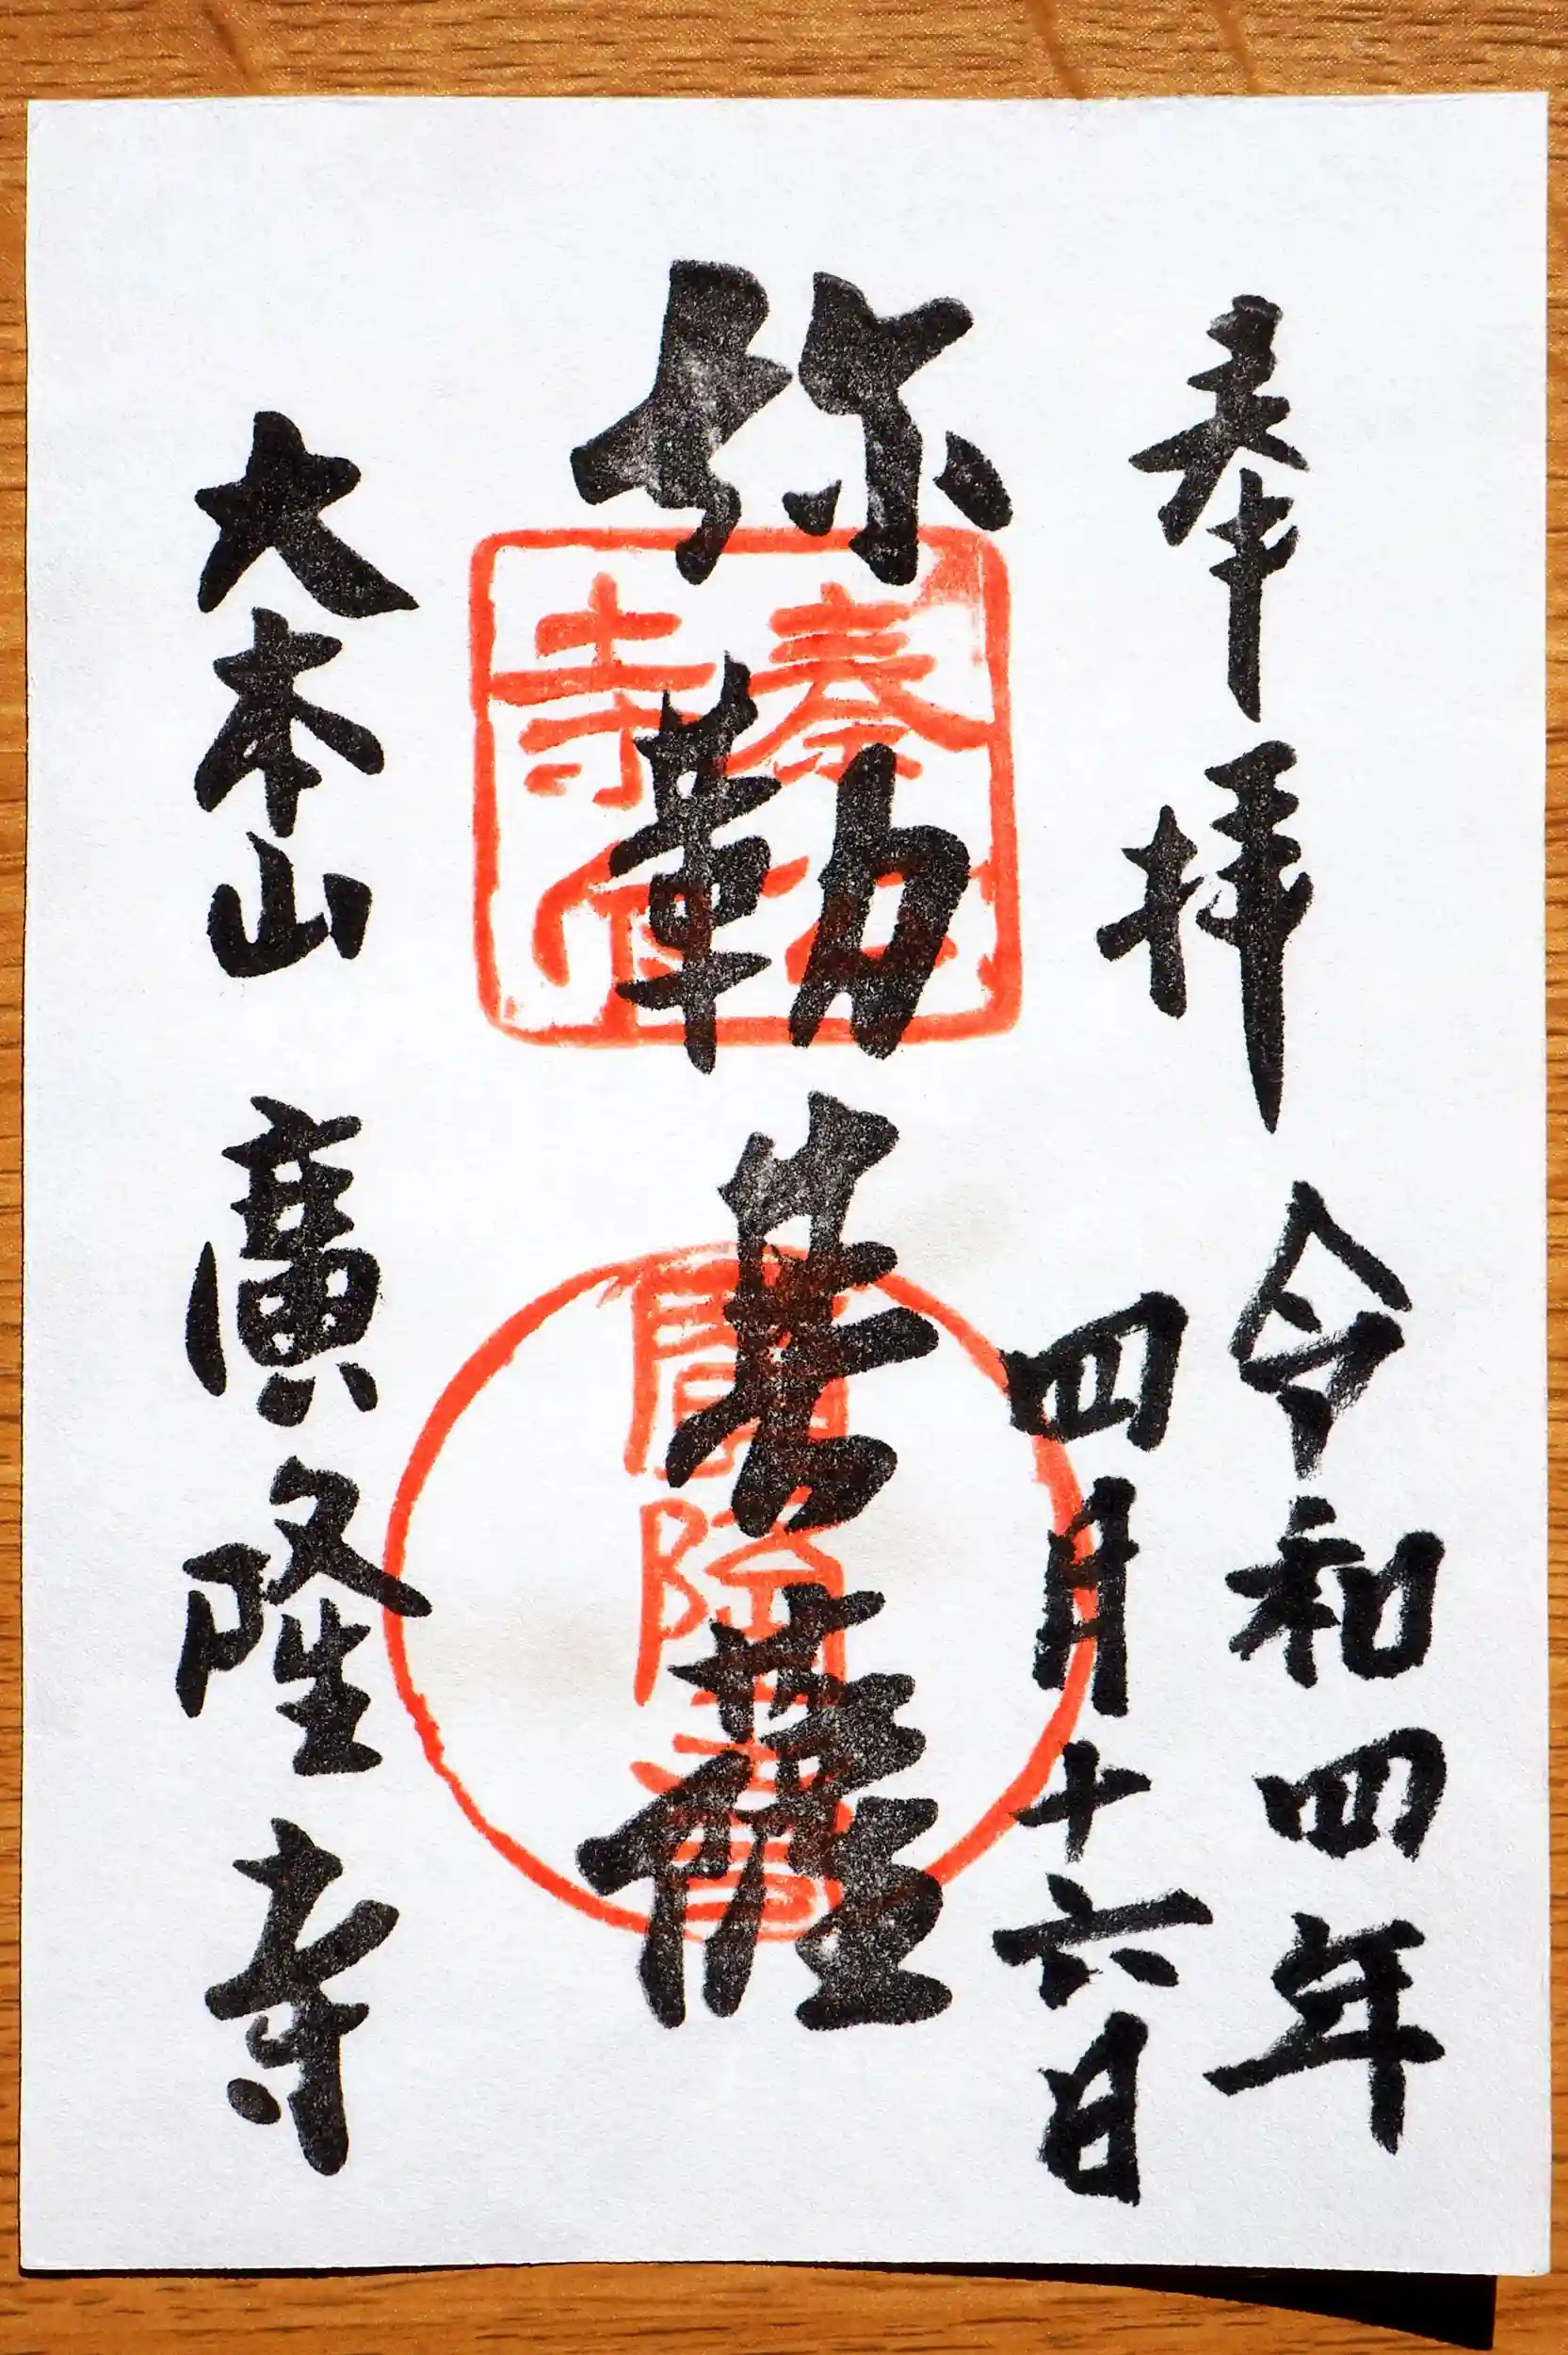 奉拝
令和四年
四月十六日
弥勒菩薩
大本山 廣隆寺
秦公
寺印